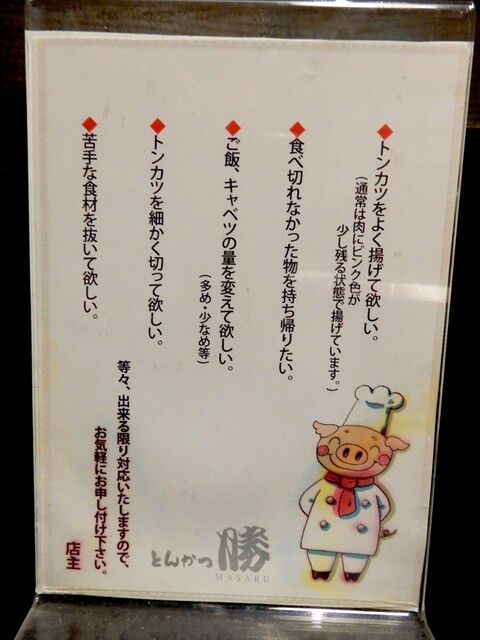 ◆トンカツをよく揚げて欲しい。
（通常は肉にピンク色が
少し残る状態で揚げています。）
◆食べ切れなかった物を持ち帰りたい。
◆ご飯、キャベツの量を変えて欲しい。
（多め・少なめ等）
◆トンカツを細かく切って欲しい。
◆苦手な食材を抜いて欲しい。
等々、出来る限り対応いたしますので、
お気軽にお申し付け下さい。
店主
とんかつ 勝
MASARU